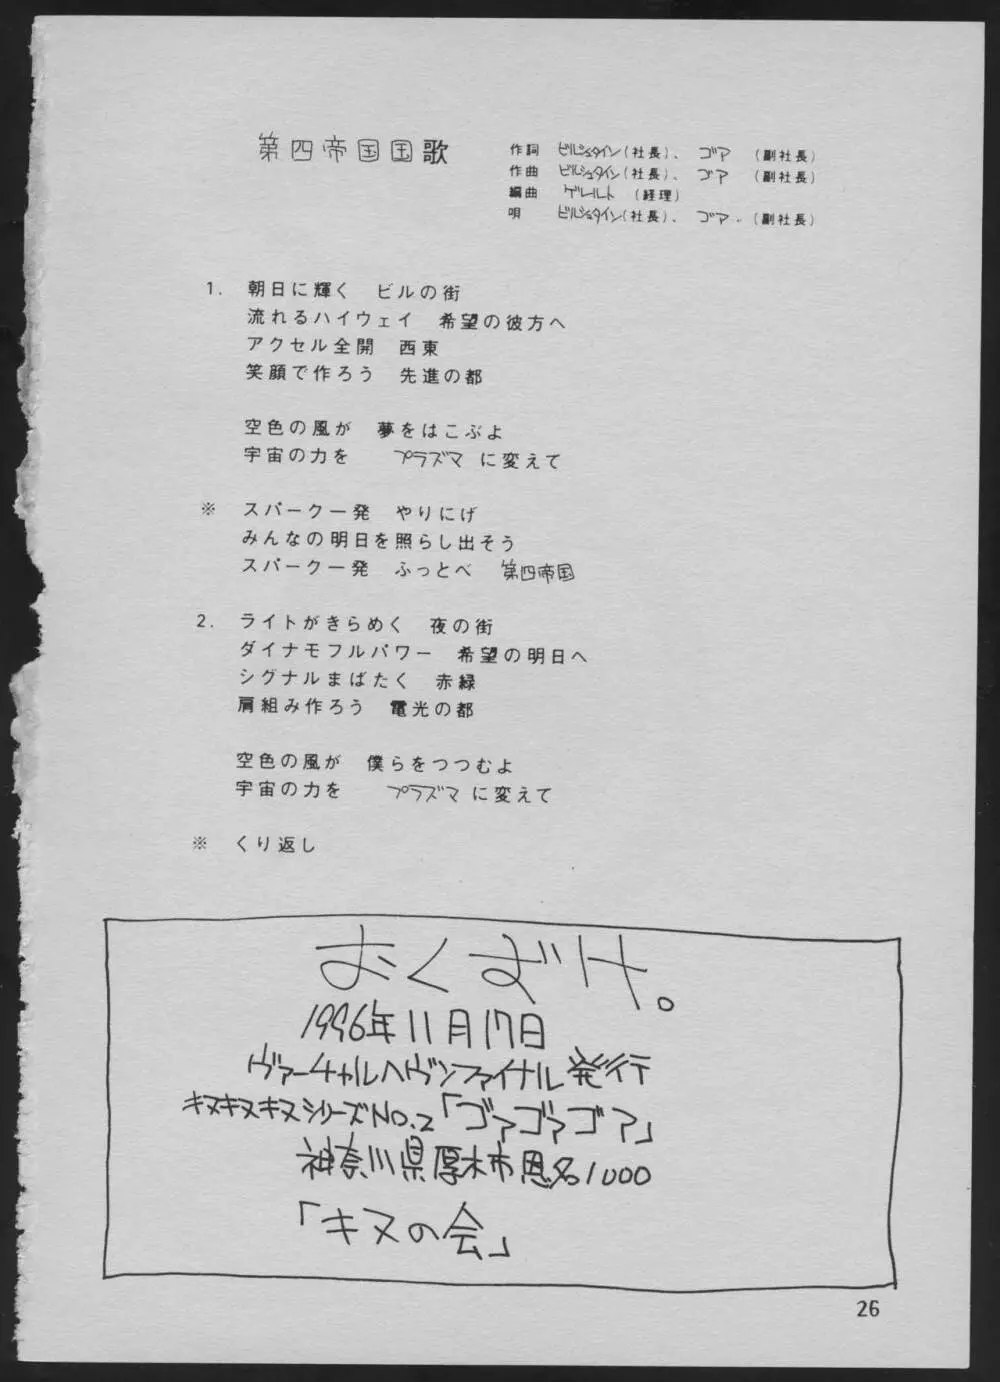 第四帝国国歌
作詞　ビルシュタイン（社長）、ゴア　（副社長）
作曲　ビルシュタイン（社長）、ゴア　（副社長）
編曲　ゲレルト　（経理）
唄　ビルシュタイン（社長）、ゴア、（副社長）
1.　朝日に輝く　ビルの街
流れるハイウェイ　希望の彼方へ
アクセル全開　西東
笑顔で作ろう　先進の都
空色の風が　夢をはこぶよ
宇宙の力を　プラズマに変えて
※　スパーク一発　やりにげ
みんなの明日を照らし出そう
スパーク一発　ふっとべ　第四帝国
2.　ライトがきらめく　夜の街
ダイナモフルパワー　希望の明日へ
シグナルまばたく　赤緑
肩組み作ろう　電光の都
空色の風が　僕らをつつむよ
宇宙の力を　プラズマに変えて
※　くり返し
おくずけ。
1996年11月17日
ヴァーチャルヘヴンファイナル発行
キヌキヌキヌシリーズNO.2「ゴァゴァゴア」
神奈川県厚木市恩名1000
「キヌの会」
26